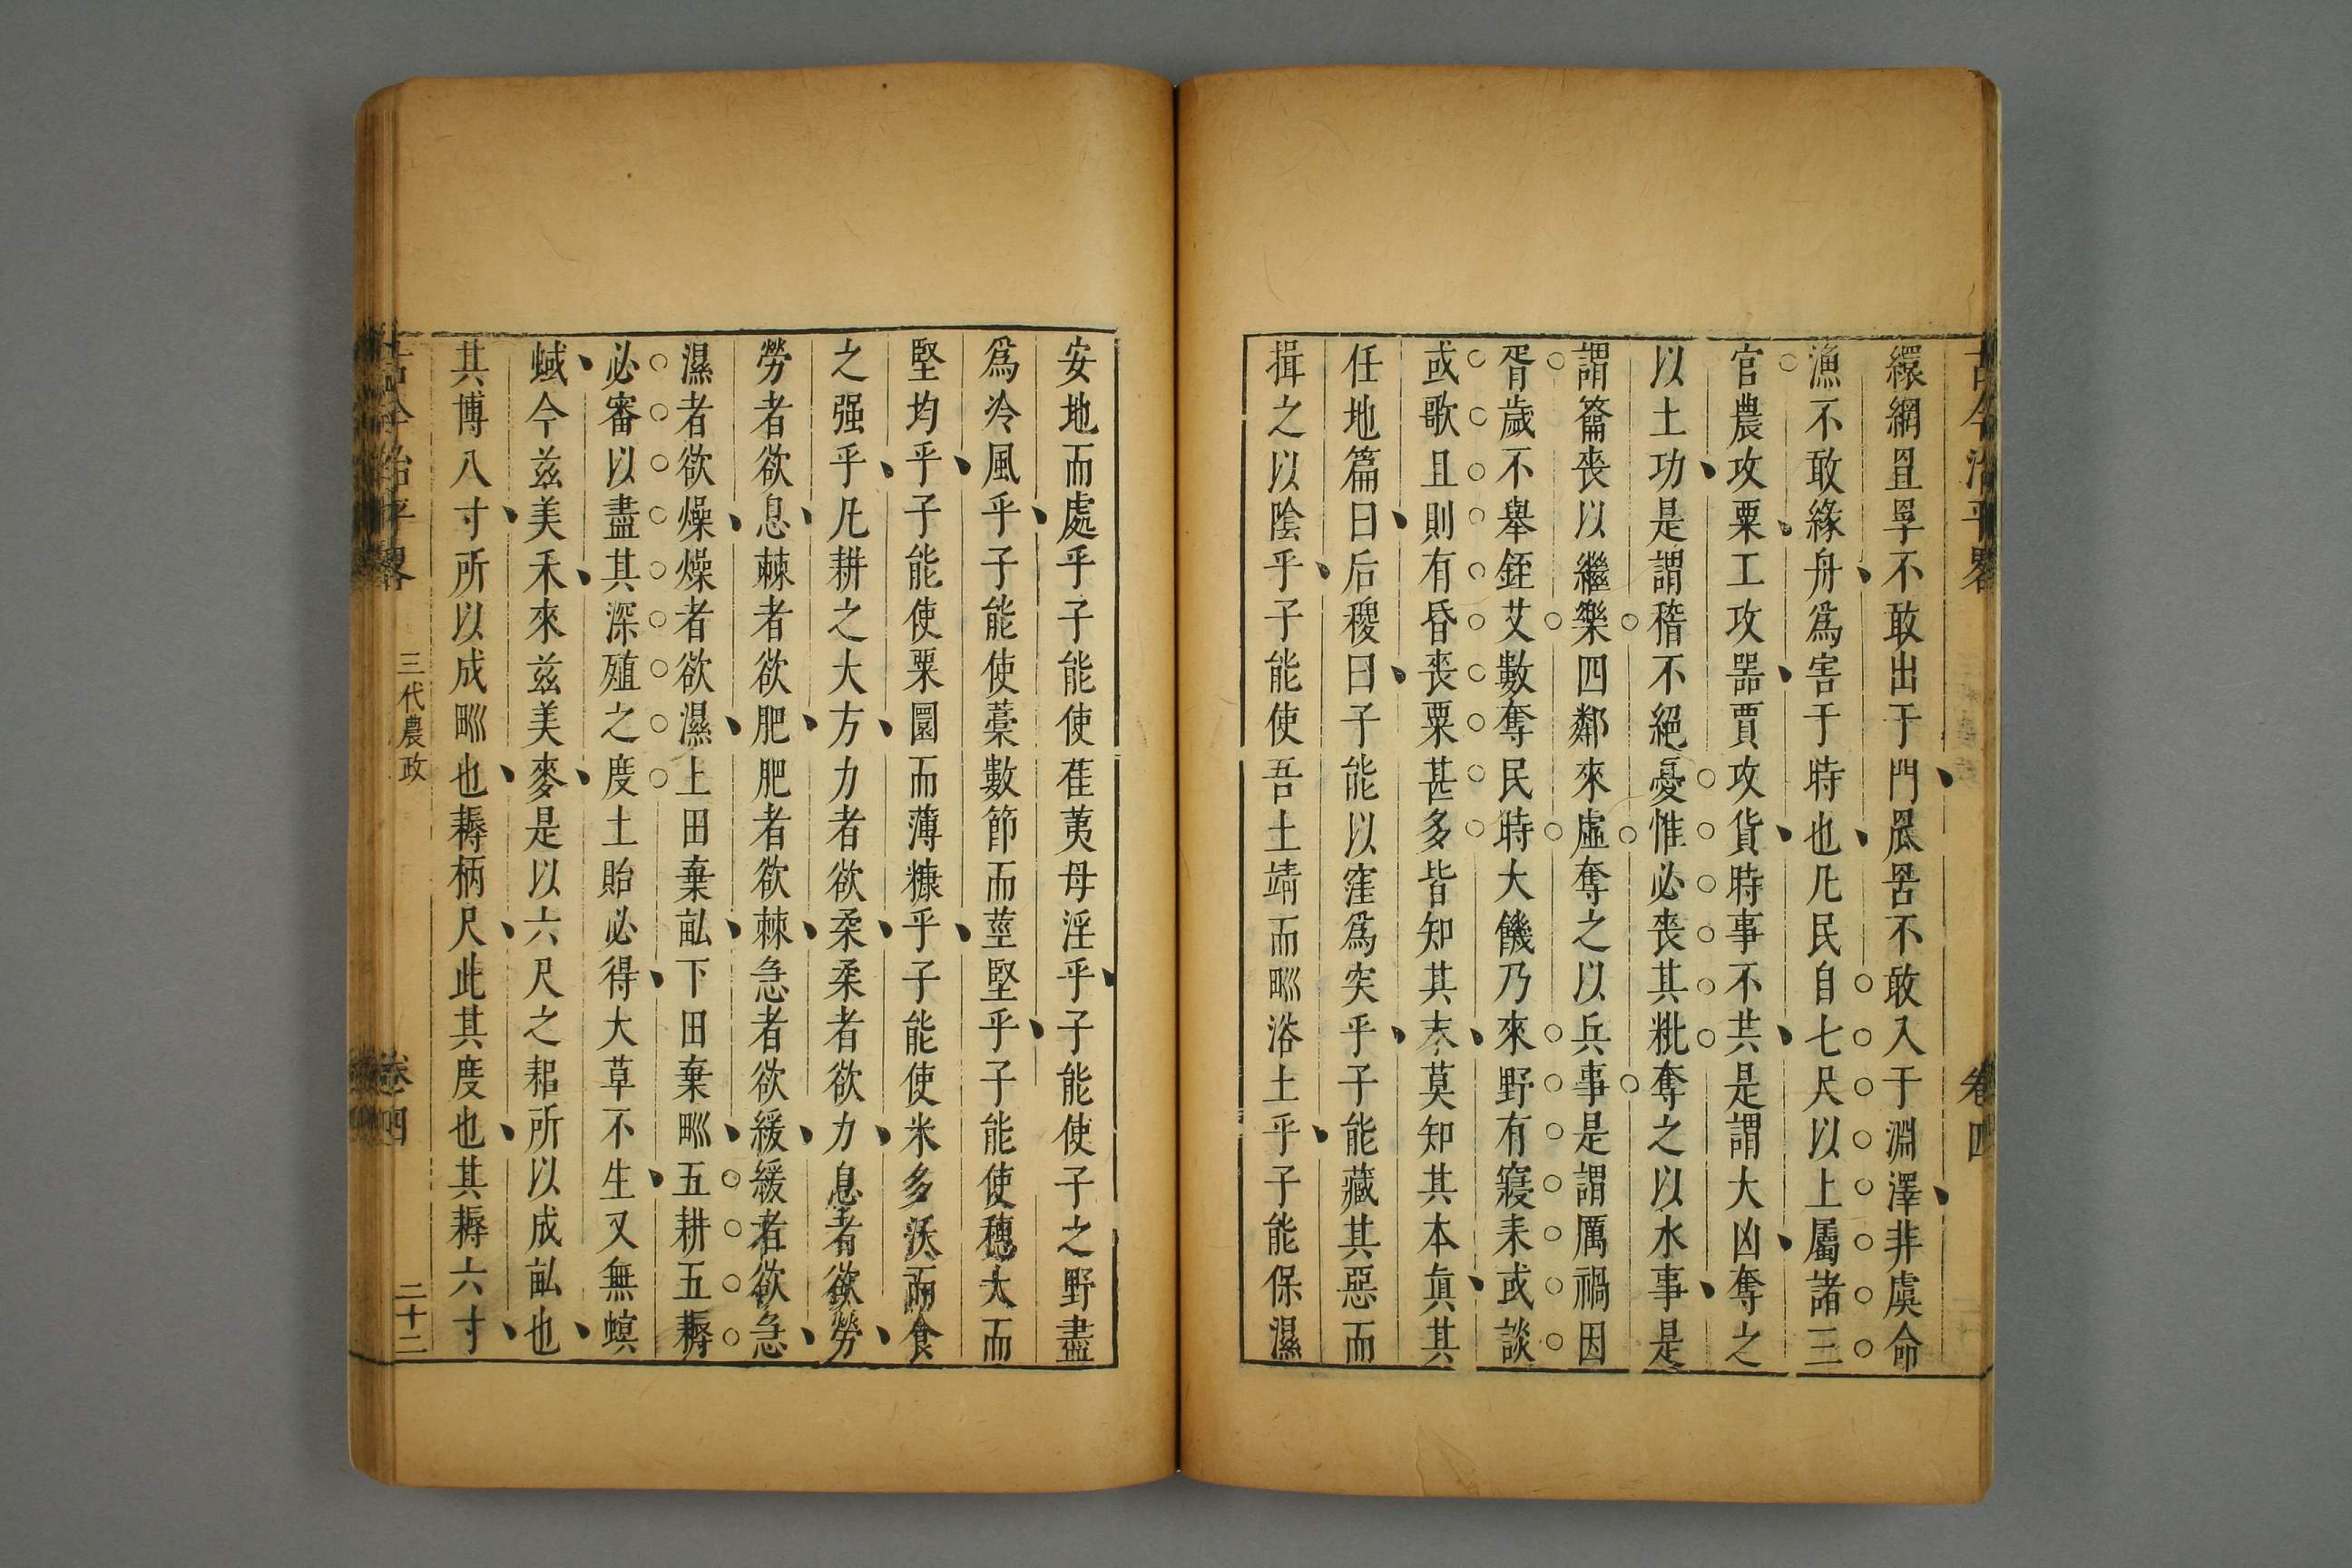 古今治平畧
卷四
繯網罝罦不敢出于門罛罟不敢入于淵澤非虞命
漁不敢緣舟爲害于時也凡民自七尺以上屬諸三
官農攻粟工攻器賈攻貨時事不共是謂大凶奪之
以土功是謂稽不絕憂惟必喪其粃奪之以水事是
謂籥喪以繼樂四鄰來虛奪之以兵事是謂厲禍因
胥歲不舉銍艾數奪民時大饑乃來野有寢耒或談
或歌旦則有昏喪粟甚多皆知其末莫知其本真其
任地篇曰后稷曰子能以窪爲突乎子能藏其惡而
揖之以陰乎子能使吾土靖而甽浴土乎子能保濕
安地而處乎子能使雚荑毋淫乎子能使子之野盡
爲冷風乎子能使藁數節而莖堅乎子能使穗大而
堅均乎子能使粟圜而薄糠乎子能使米多沃而食
之强乎凡耕之大方力者欲柔柔者欲力息者欲勞
勞者欲息棘者欲肥肥者欲棘急者欲緩緩者欲急
濕者欲燥燥者欲濕上田棄畝下田棄甽五耕五耨
必審以盡其深殖之度土貽必得大草不生又無螟
蜮今茲美禾來茲美麥是以六尺之耜所以成畝也
其博八寸所以成甽也耨柄尺此其度也其耨六寸
古今治平畧
三代農政
卷四
二十二